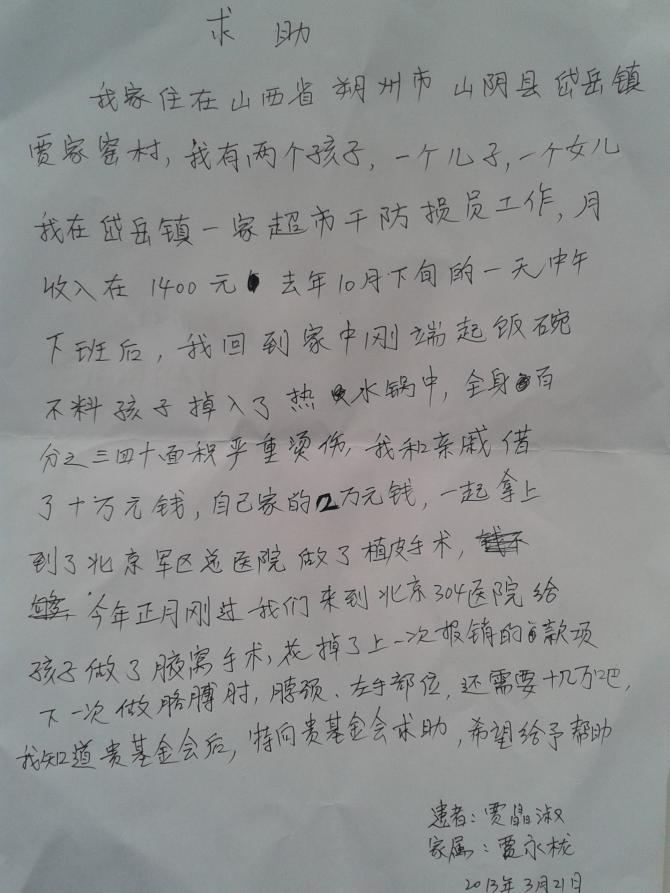 求助
我家住在山西省朔州市山阴县岱岳镇
贾家窑村，我有两个孩子，一个儿子，一个女儿
我在岱岳镇一家超市干防损员工作，月
收入在1400元 去年10月下旬的一天中午
下班后，我回到家中刚端起饭碗
不料孩子掉入了热水锅中，全身百
分之三四十面积严重烫伤，我和亲戚借
了十万元钱，自己家的2万元钱，一起拿上
到了北京军区总医院做了植皮手术，
今年正月刚过我们来到北京304医院给
孩子做了腋窝手术，花掉了上一次报销的款项
下一次做胳膊肘，脖颈、左手部位，还需要十几万吧，
我知道贵基金会后，特向贵基金会求助，希望给予帮助
患者：贾晶淑
家属：贾永栊
2013年3月21日